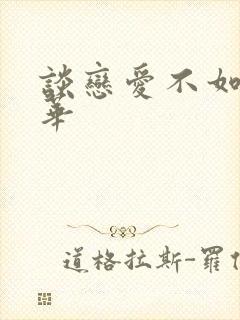 談戀愛不如
華
道格拉斯-羅